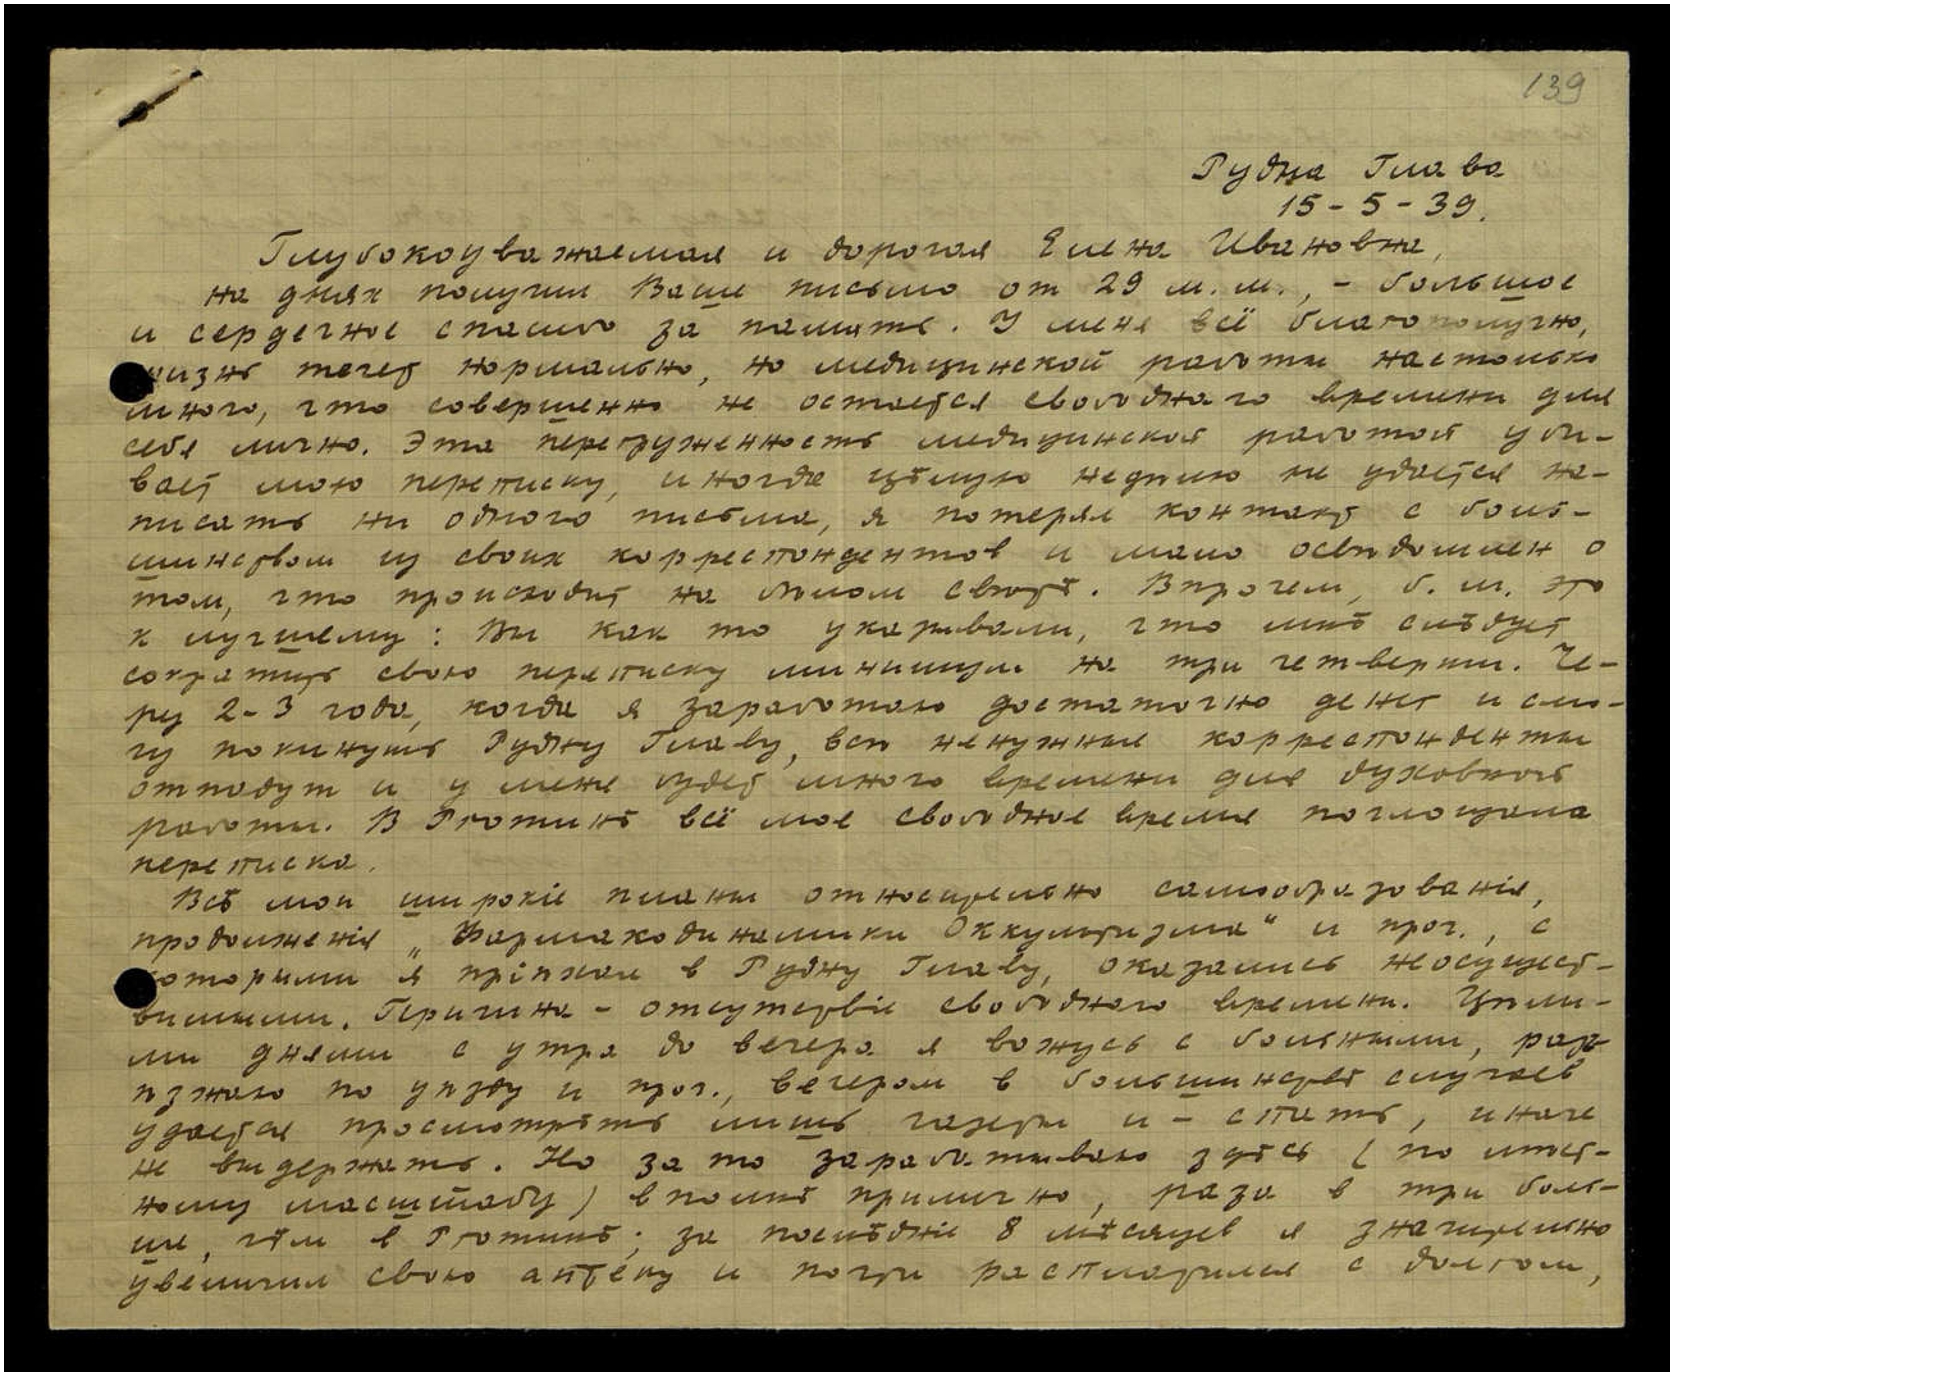 139
Рудна Глава
15-5-39.
Глубокоуважаемая и дорогая Елена Ивановна,
на днях получил Ваше письмо от 29 м.м., - большое
и сердечное спасибо за память. У меня всё благополучно,
жизнь течет нормально, но медицинской работы настолько
много, что совершенно не остается свободнаго времени для
себя лично. Эта перегруженность медицинской работой уби-
вает мою переписку, иногда цѣлую недѣлю не удается на-
писать ни одного письма, я потерял контакт с боль-
шинством из своих корреспондентов и мало освѣдомлен о
том, что происходит на бѣлом свѣтѣ. Впрочем, б.м. это
к лучшему: Вы как то указывали, что мнѣ слѣдует
сократить свою переписку минимум на три четверти. Че-
рез 2-3 года, когда я заработаю достаточно денег и смо-
гу покинуть Рудну Главу, всѣ ненужные корреспонденты
отпадут и у меня будет много времени для духовной
работы. В Рготинѣ всё мое свободное время поглощала
переписка.
Всѣ мои широкіе планы относительно самообразованія,
продолженія „Фармакодинамики Оккультизма" и проч., с
которыми я пріѣхал в Рудну Главу, оказались неосущест-
вимыми. Причина - отсутствіе свободного времени. Цѣлы-
ми днями с утра до вечера я вожусь с больными, раз-
ѣзжаю по уѣзду и проч., вечером в большинствѣ случаев
удается просмотрѣть лишь газеты и - спать, иначе
не выдержать. Но за то зарабатываю здѣсь (по мѣст-
ному масштабу) вполнѣ прилично, раза в три боль-
ше, чѣм в Рготинѣ; за послѣдніе 8 мѣсяцев я значительно
увеличил свою аптеку и почти расплатился с долгом,